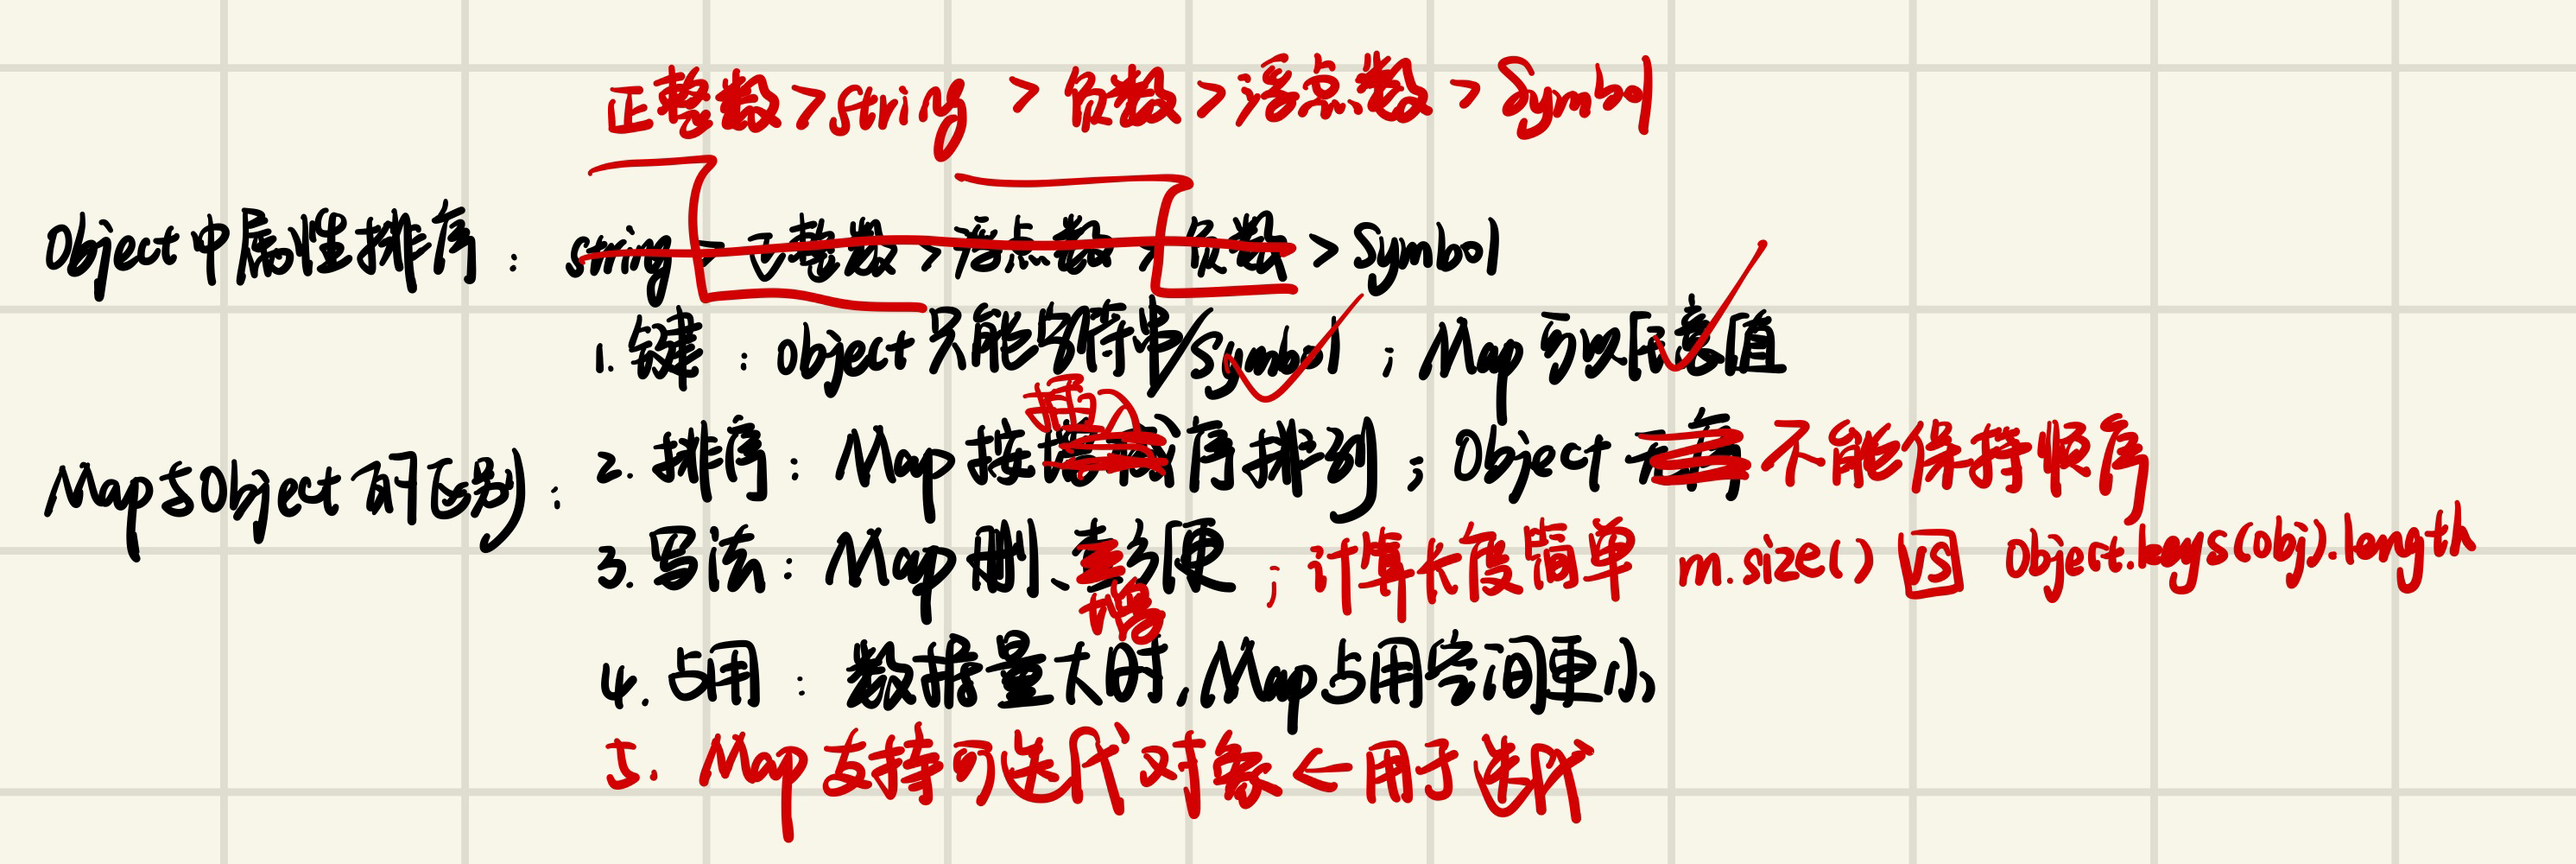 正整数 > string > 负数 > 浮点数 > Symbol
Object中属性排序： string > 正整数 > 浮点数 > 负数 > Symbol
Map与Object的区别：
1. 键：object只能字符串/Symbol；Map可以任意值
2. 排序：Map按插入序排列；Object 无序 不能保持顺序
3. 写法：Map删、查方便；计算长度简单 m.size() VS Object.keys(obj).length
增
4. 占用：数据量大时,Map占用空间更小
5. Map支持可迭代对象 ← 用于迭代